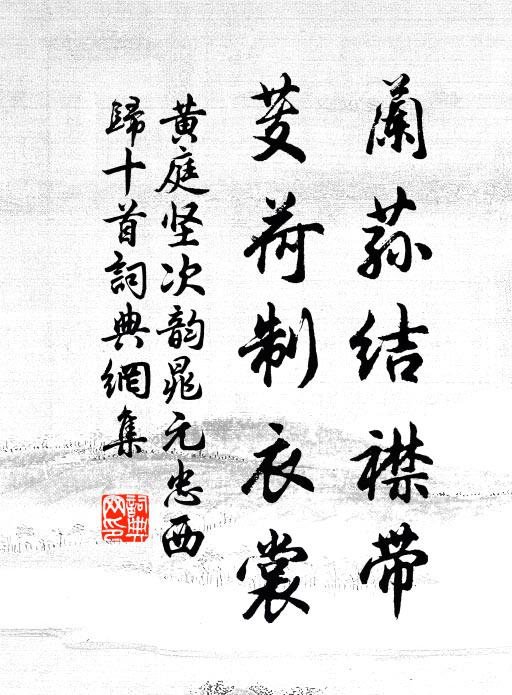 蘭蓀結襟帶
芰荷制衣裳
黃庭坚次韵晁元忠西
歸十首詞典網集
詞典
网印